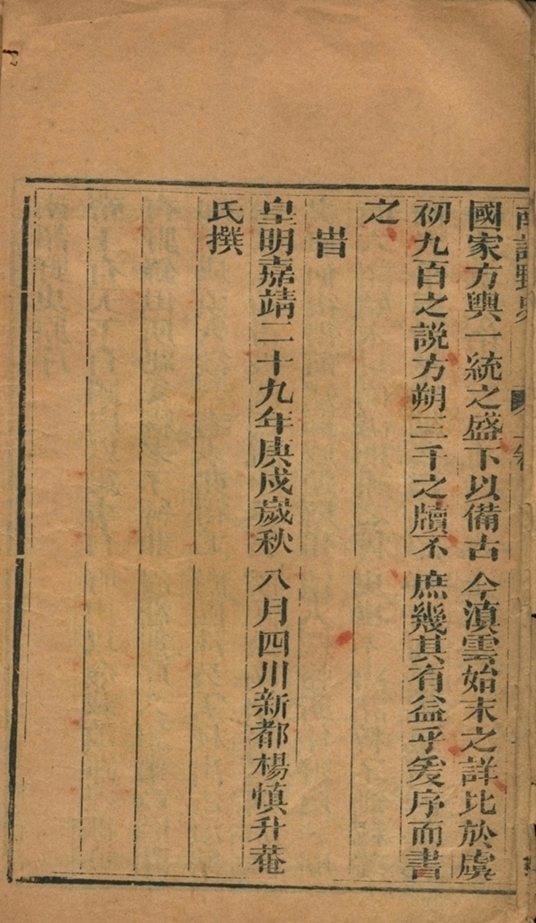 南詔野史
上卷
國家方輿一統之盛下以備古今滇雲始末之詳比於虞
初九百之說方朔三千之牘不庶幾其有益乎爰序而書
之
旹
皇明嘉靖二十九年庚戌歲秋八月四川新都楊慎升菴
氏撰